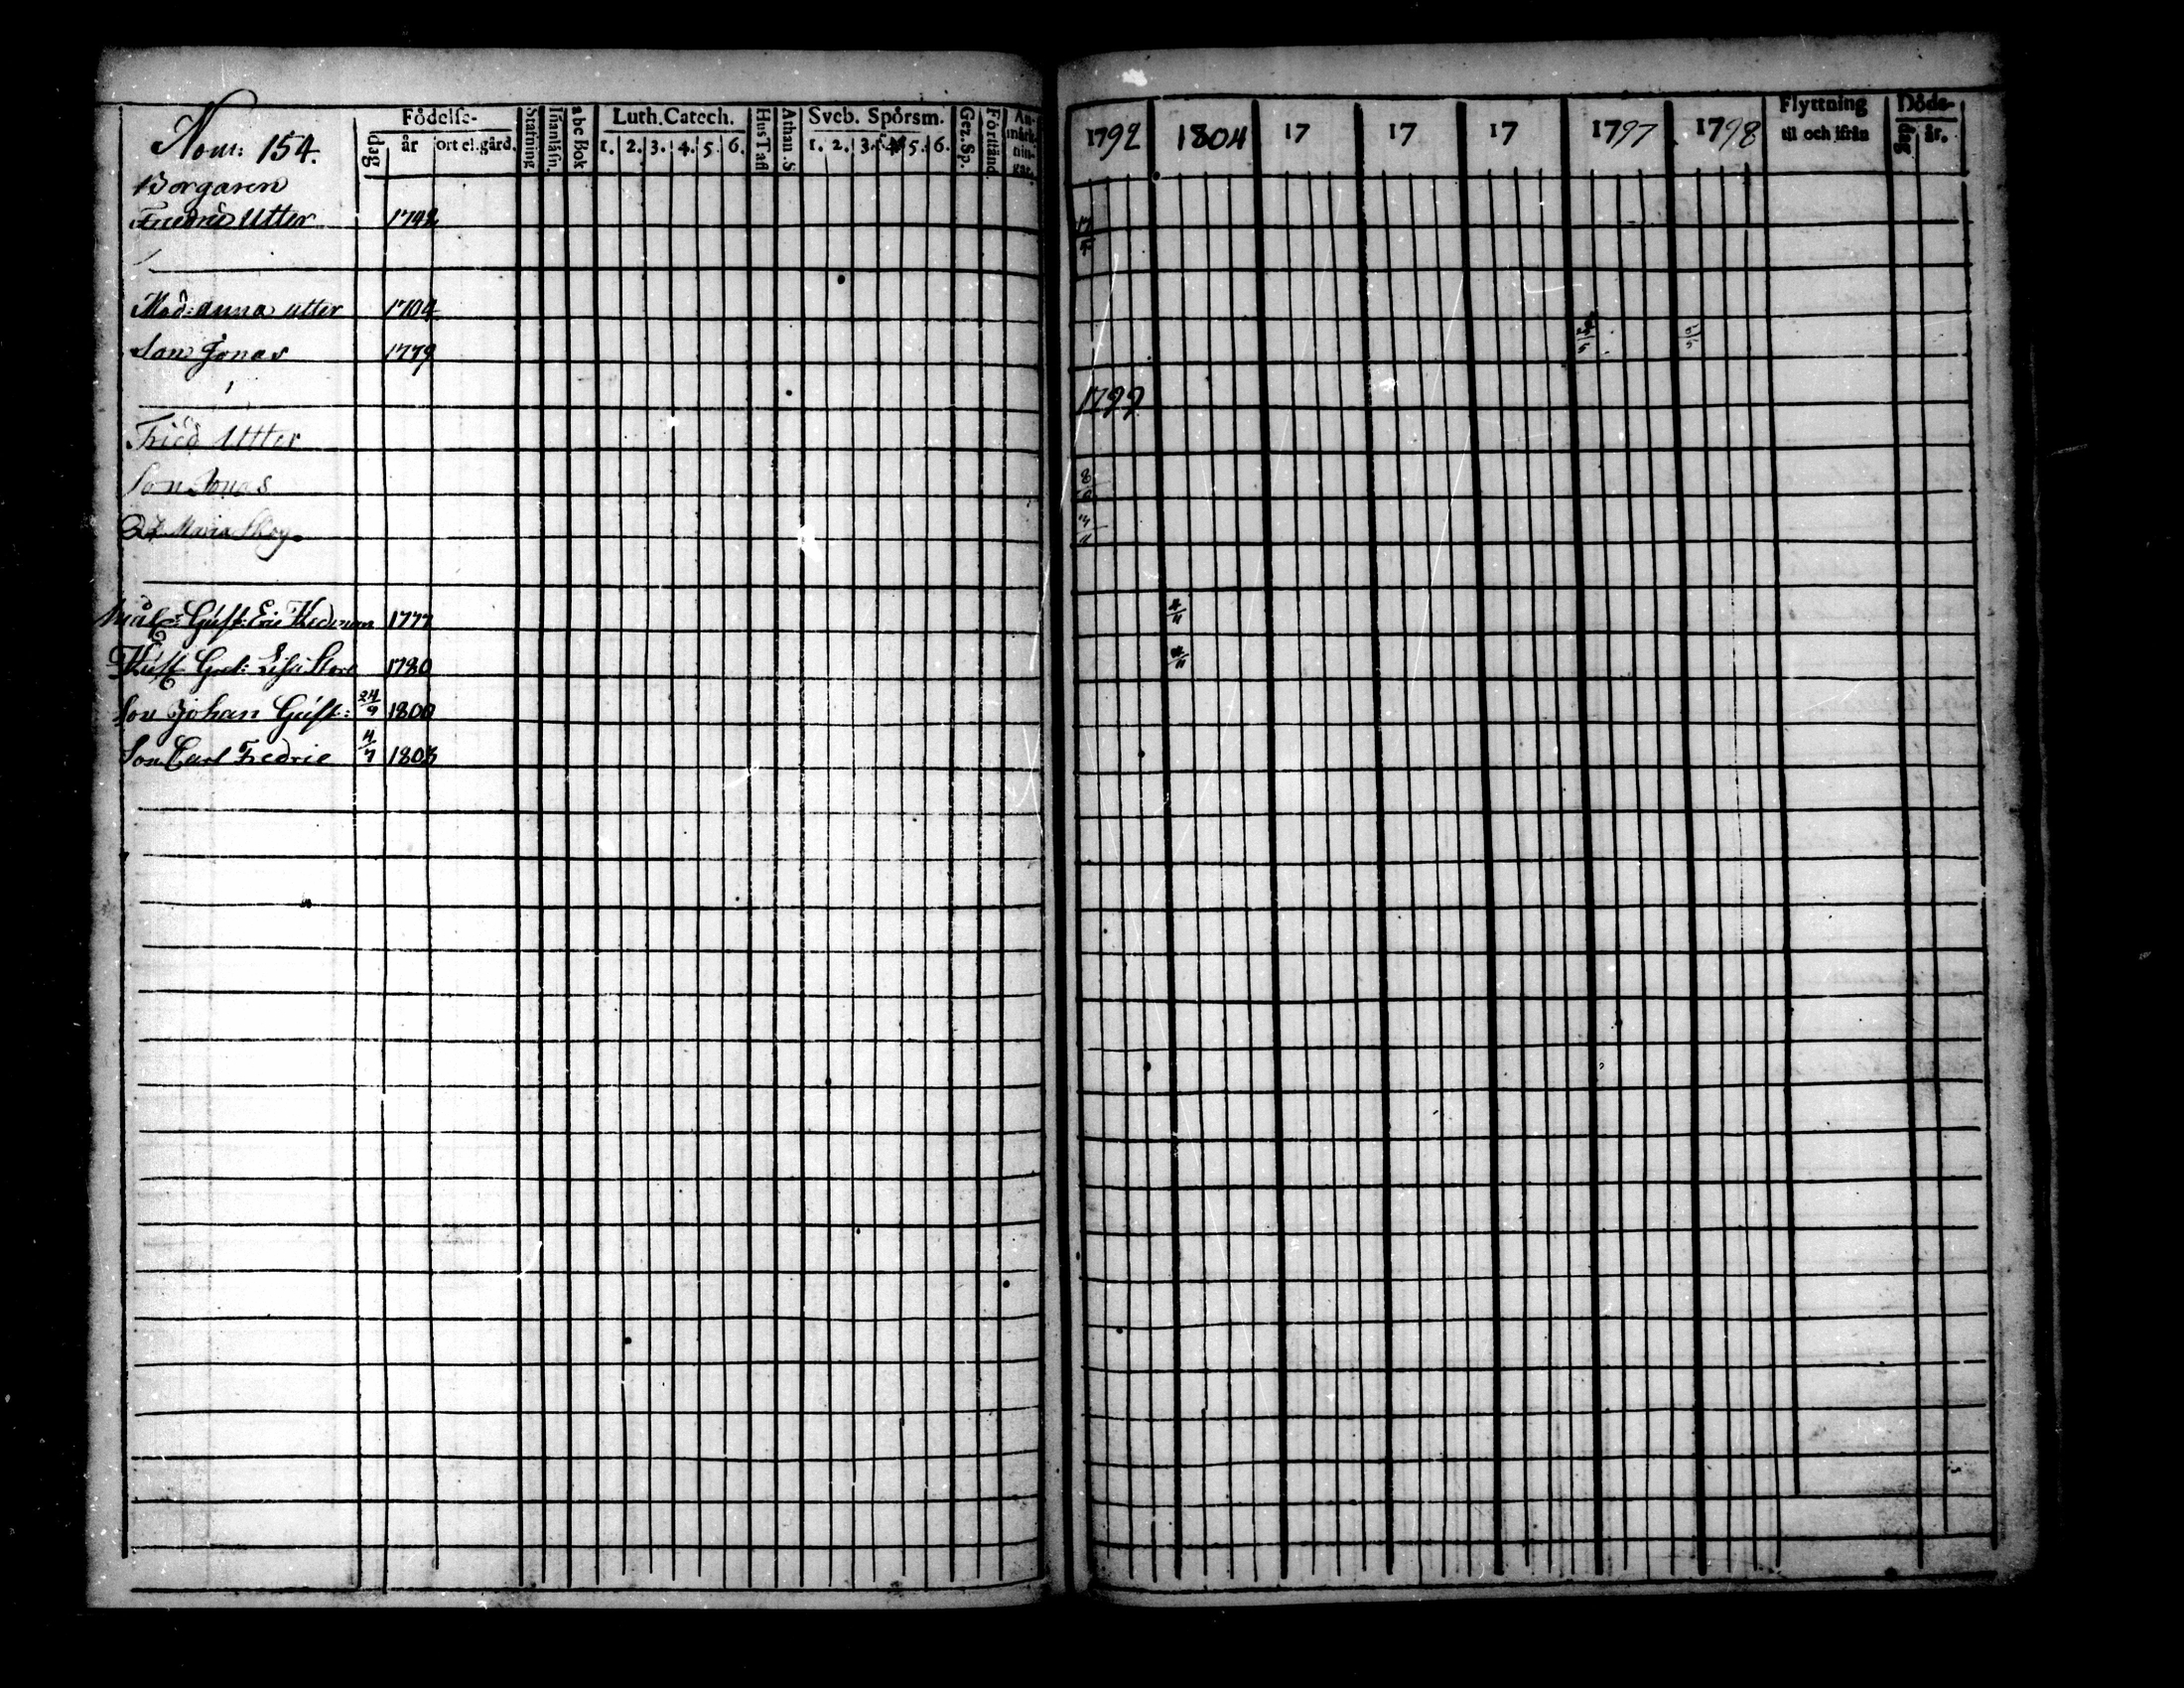 Nom: 154.
Födelse-
dag
år
ort el. gård.
Stafning
Iñanläsn.
abc Bok
Luth. Catech.
1. 2. 3. 4. 5. 6.
Hus Tafl
Athan. S
Sveb. Spörsm.
1. 2. 3. 4. 5. 6.
Gez. Sp.
Förständ.
An-
märk-
nin-
gar.
1792
1804
17
17
17
1797
1798
Flyttning
til och ifrån
Döds-
dag
år.
Borgaren
Fredric Utter 1742 17/5
Mad: Anna Utter 1704
Son Jonas 1779
1799
Fried Utter
Son Jonas 8
Maria
Gust: Eric 1777 4/11
Hust. Gret: Lisa 1780 4/11
Son Johan Gust: 24/9 1800
Son Carl Fredric 4/7 1803